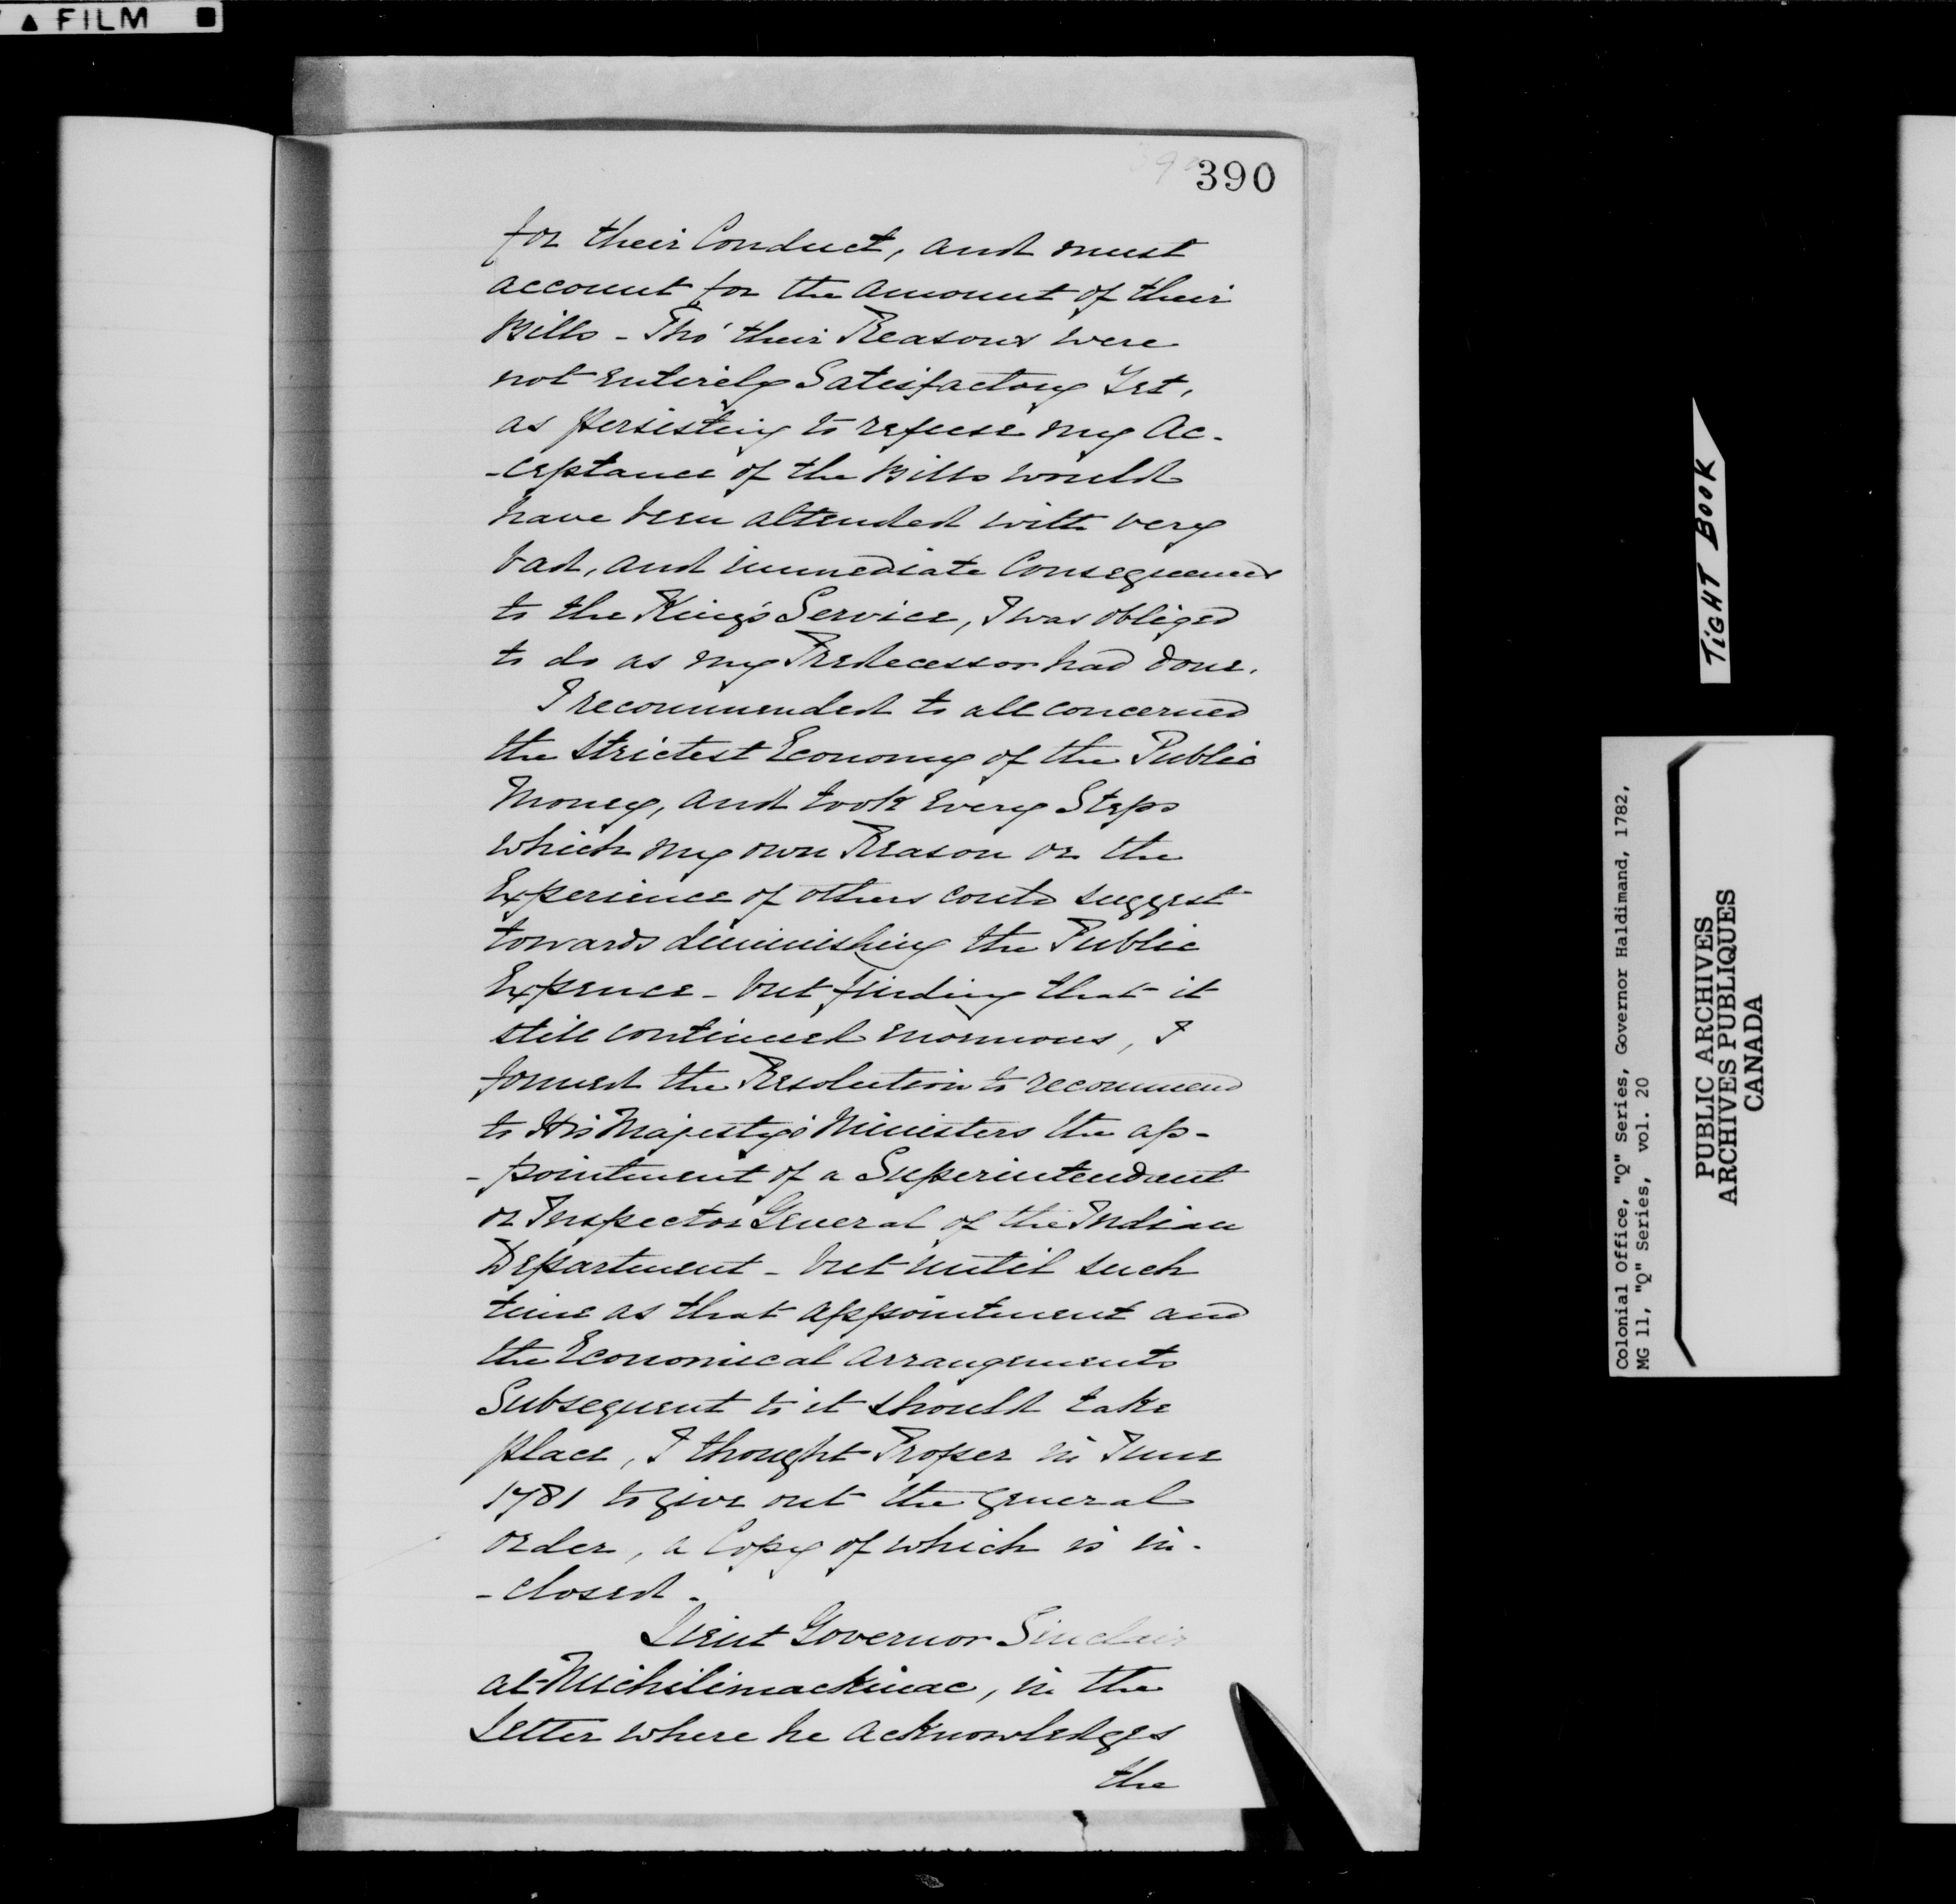 ▲ FILM ■
390
390
for their Conduct, and must
account for the amount of their
Bills - Tho' their Reasons were
not entirely Satisfactory Yet,
as persisting to refuse my Ac-
-ceptance of the Bills would
have been attended with very
bad, and immediate Consequences
to the King's Service, I was obliged
to do as my Predecessor had done.
I recommended to all concerned
the strictest Economy of the Public
Money, and took every Steps
which my own Reason or the
Experience of others could suggest
towards diminishing the Public
Expence - but finding that it
still continued enormous, I
formed the Resolution to recommend
to His Majesty's Ministers the ap-
-pointment of a Superintendant
or Inspector General of the Indian
Department - but until such
time as that appointment and
the Economical arrangements
Subsequent to it should take
place, I thought Proper in June
1781 to give out the general
order, a Copy of which is in-
-closed -
Lieut Governor Sinclair
at Michilimackinac, in the
Letter where he acknowledges
the
TIGHT BOOK
Colonial Office, "Q" Series, Governor Haldimand, 1782,
MG 11, "Q" Series, vol. 20
PUBLIC ARCHIVES
ARCHIVES PUBLIQUES
CANADA